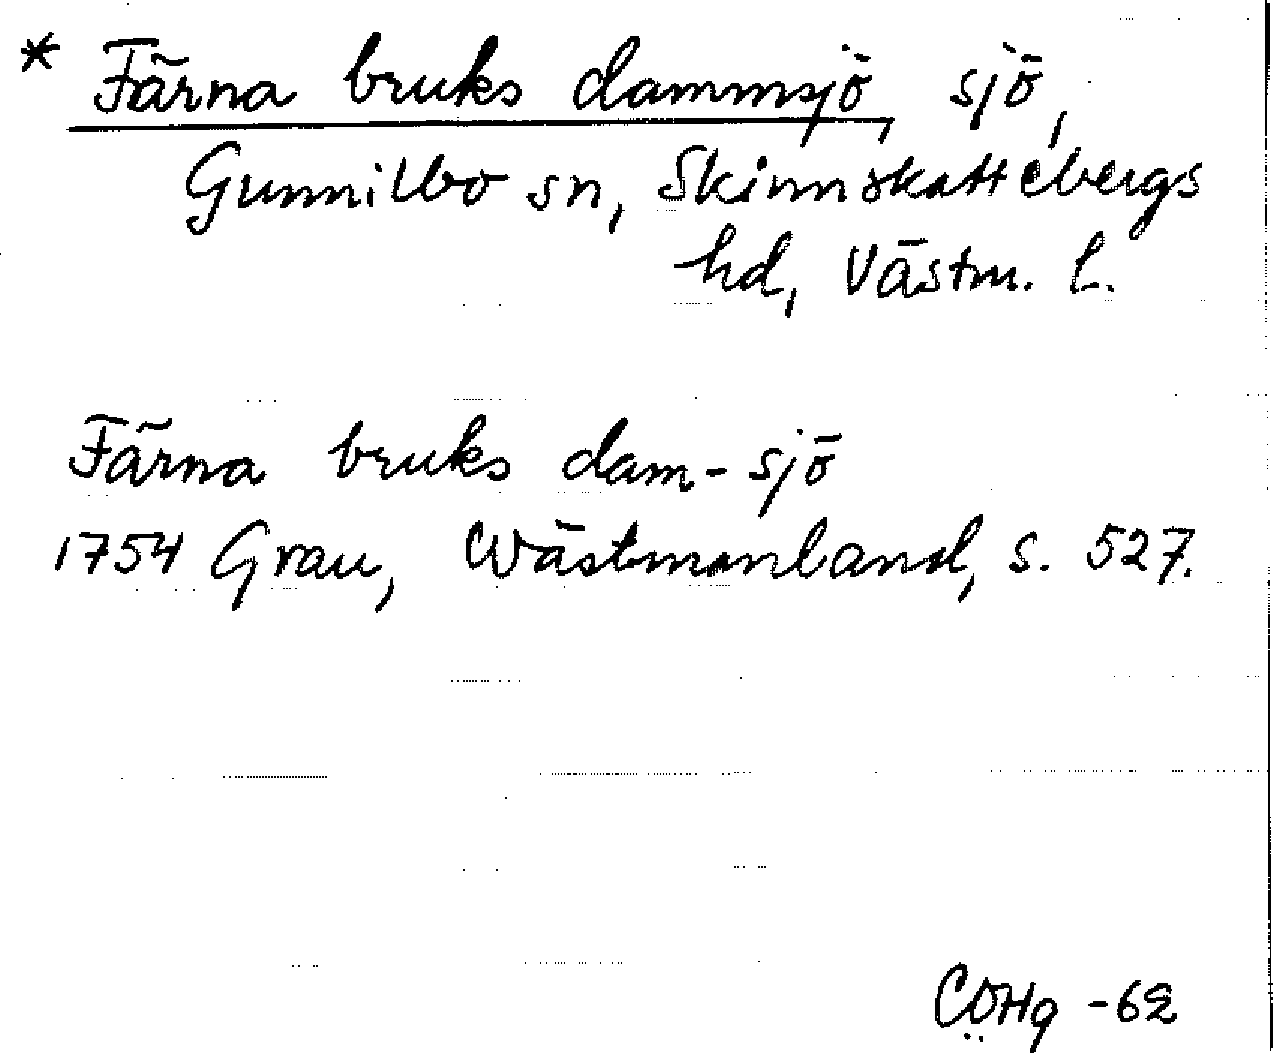 * Färna bruks dammsjö, sjö,
Gunnilbo sn, Skinnskattebergs
hd, Västm. l.
Färna bruks dam-sjö
1754 Grau, Wästmanland, s. 527.
CÖHg -62